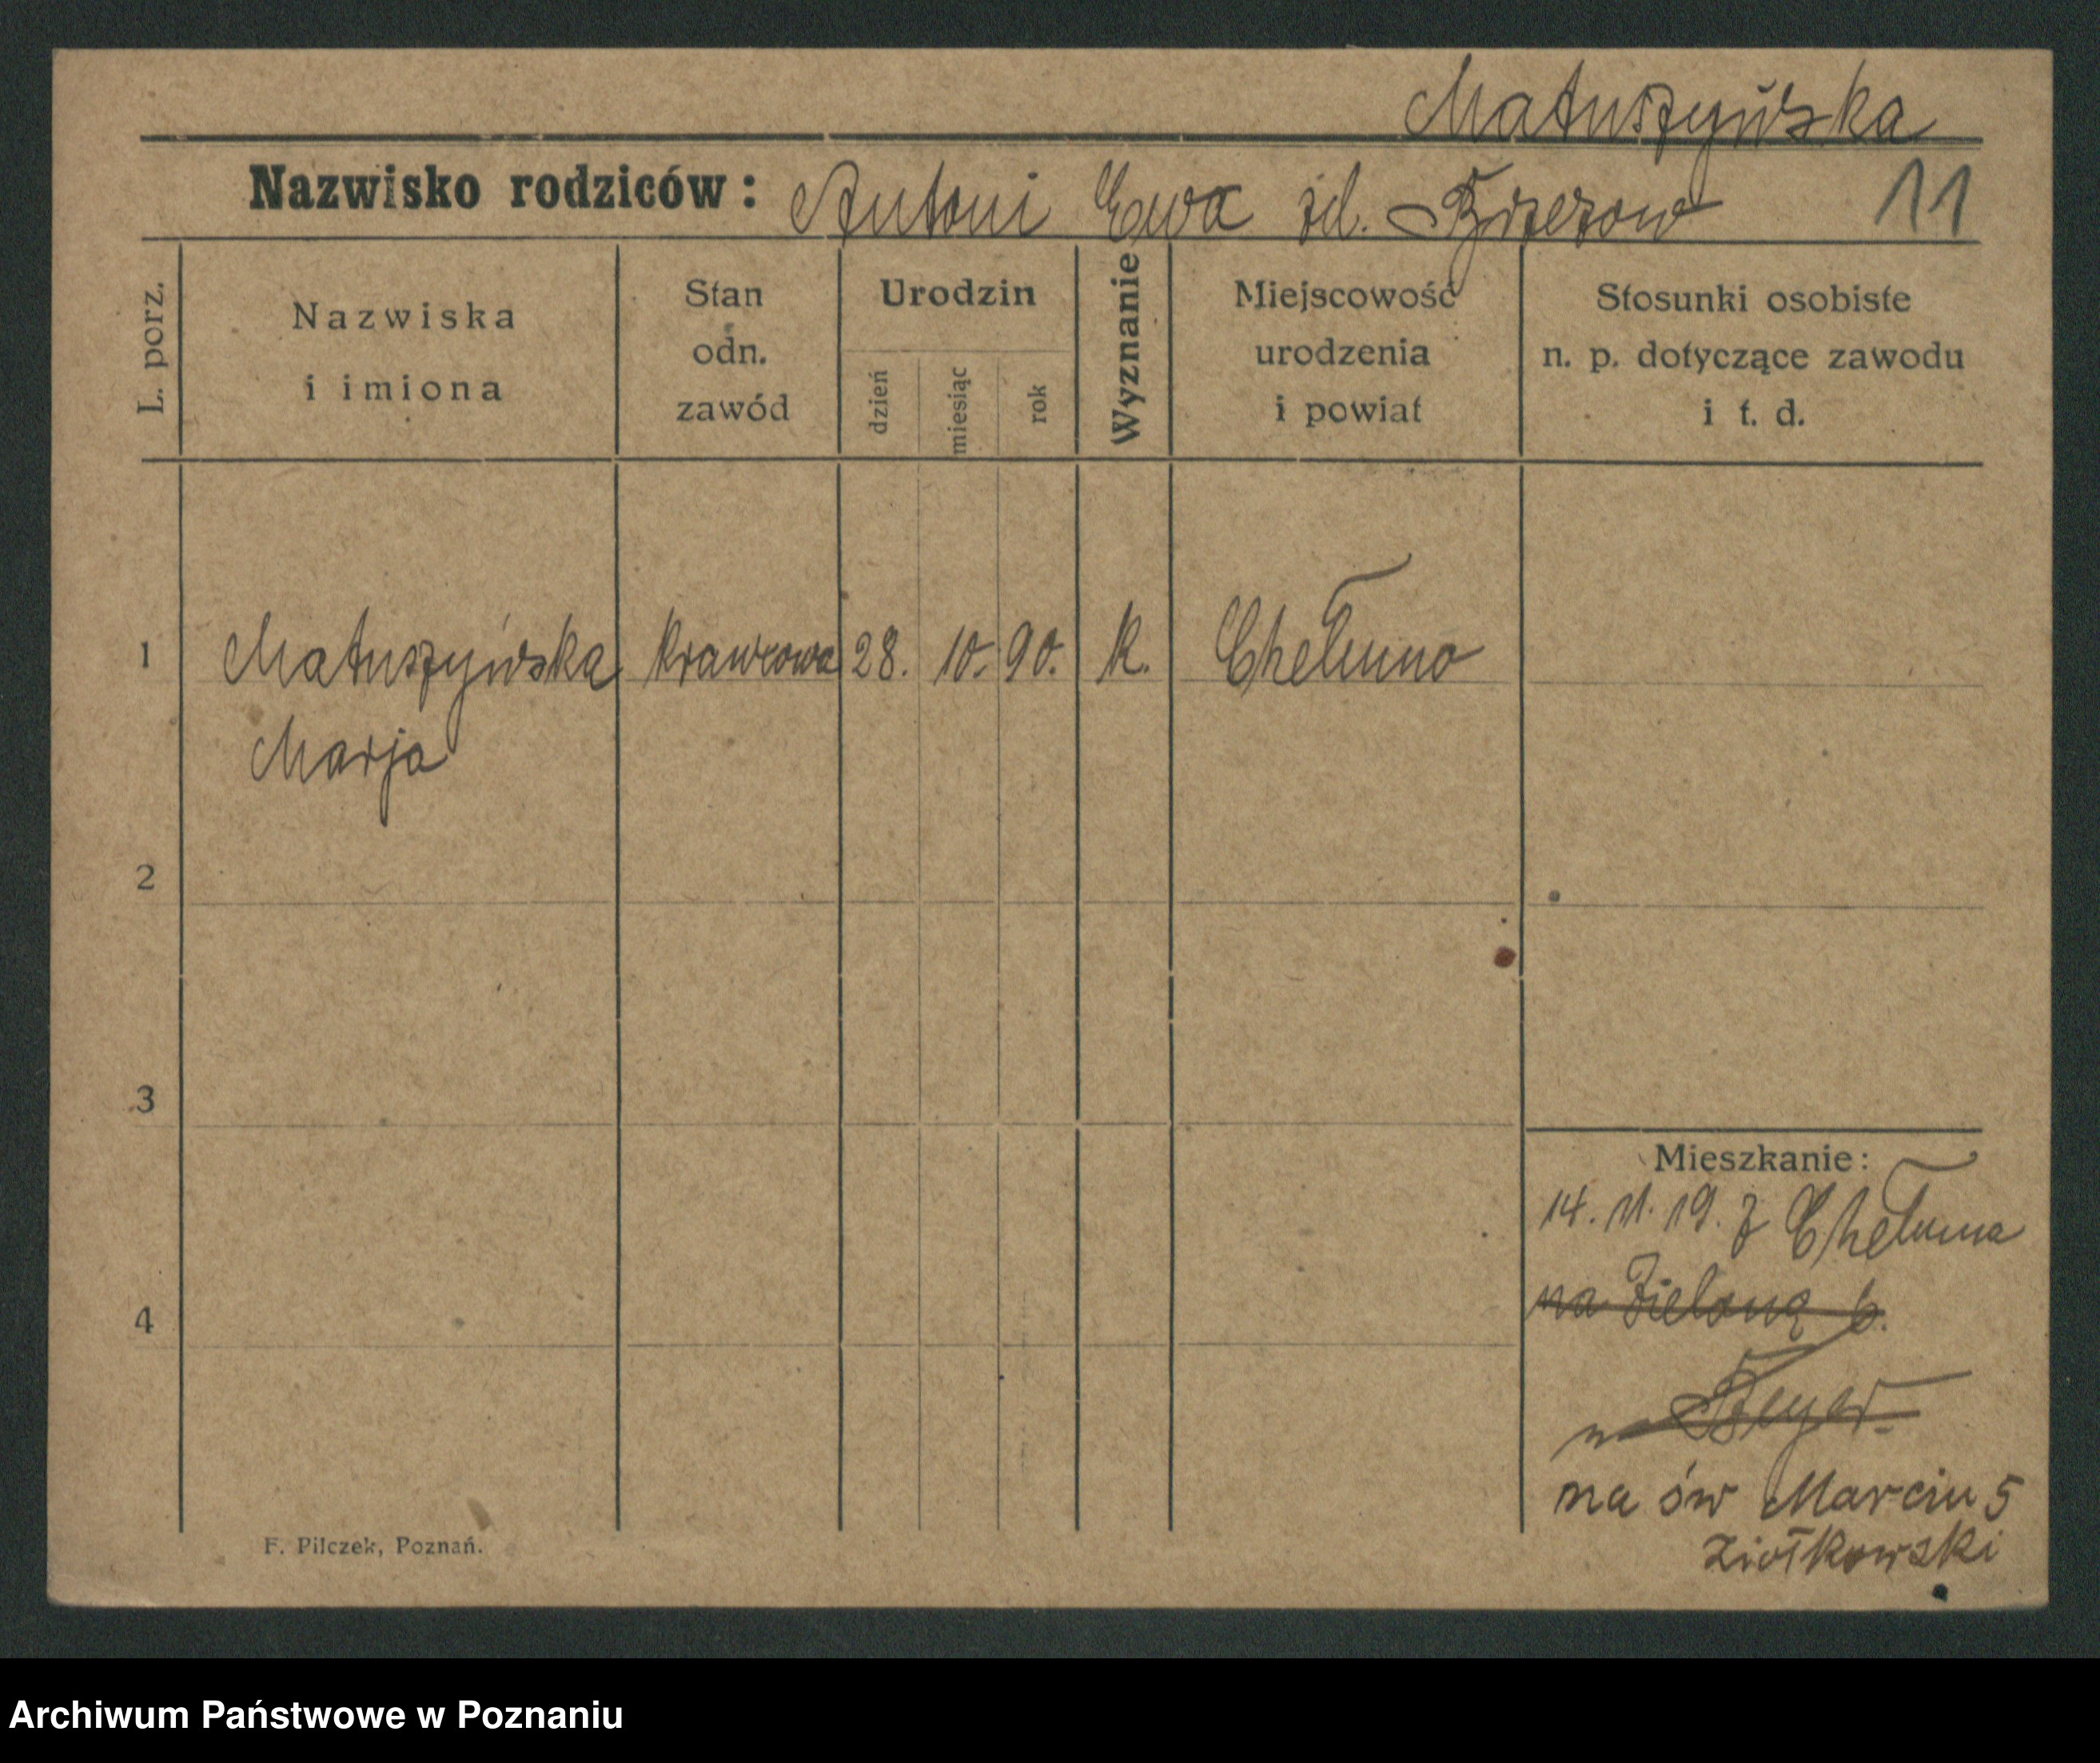 Matuszyńska
Nazwisko rodziców: Antoni Ewa zd. Brzezow 11
L. porz.
Nazwiska
i imiona
Stan
odn.
zawód
Urodzin
dzień
miesiąc
rok
Wyznanie
Miejscowość
urodzenia
i powiat
Stosunki osobiste
n. p. dotyczące zawodu
i t. d.
1 Matuszyńska krawcowa 28. 10. 90. k. Chełmno
Marja
2
3
4
Mieszkanie:
14. 11. 19. z Chełmna
na Zieloną 6.
Beyer
na św Marcin 5
Ziółkowski
F. Pilczek, Poznań.
Archiwum Państwowe w Poznaniu